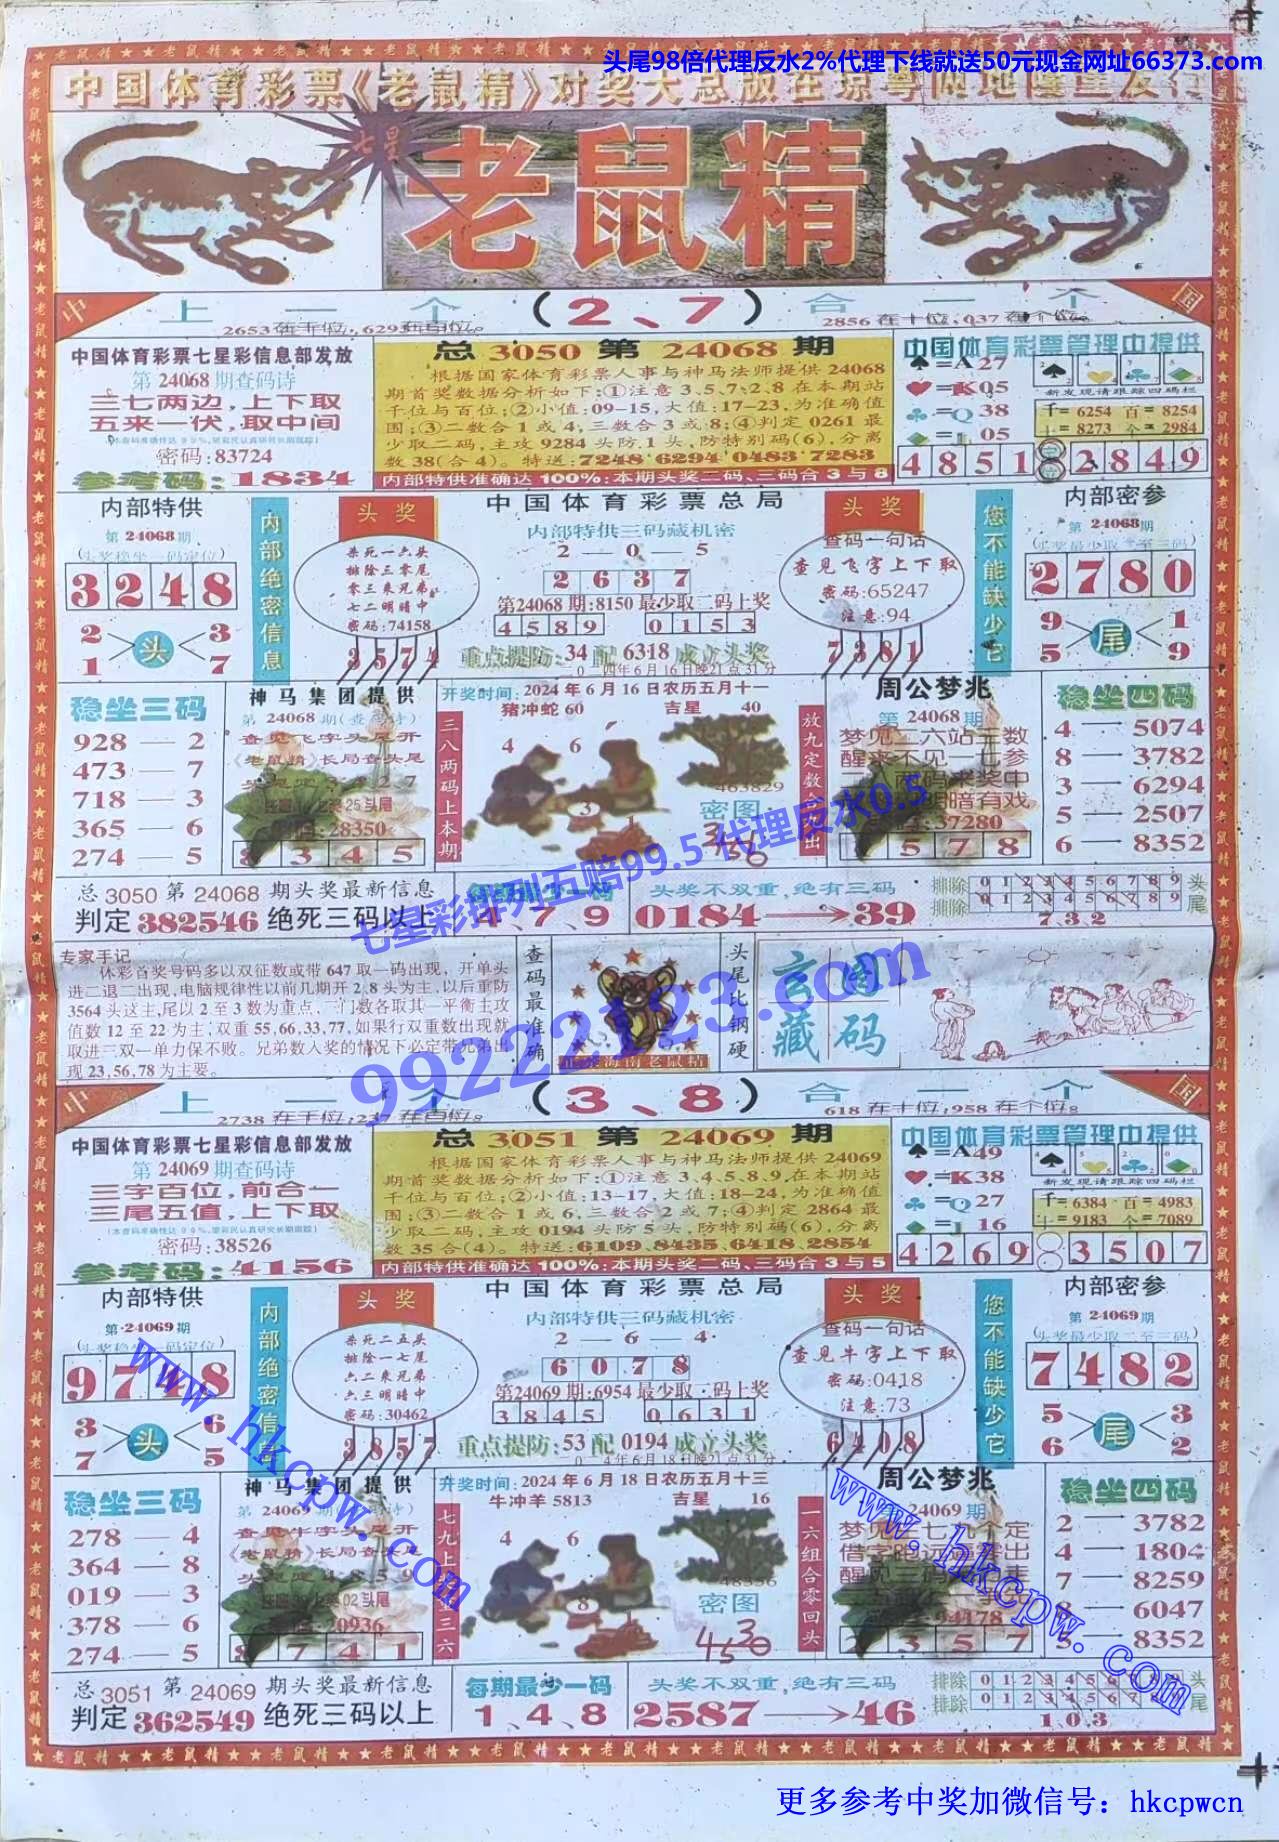 头尾98倍代理反水2%代理下线就送50元现金网址66373.com
中国体育彩票《老鼠精》对奖大总版在琼粤两地隆重发行
七星
老鼠精
中 上一个 (2、7) 合一个 国
2653在千位,629在百位。
2856在十位,037在个位。
中国体育彩票七星彩信息部发放
第24068期查码诗
三七两边,上下取
五来一伏,取中间
密码:83724
参考码:1834
总3050第24068期
根据国家体育彩票人事与神马法师提供24068
期首奖数据分析如下:①注意3.5.7.2.8在本期站
千位与百位;②小值:09-15,大值:17-23,为准确值
围;③二数合1或4,三数合3或8;④判定0261最
少取二码,主攻9284头防1头,防特别码(6),分离
数38(合4)。特送:7248.6294.0483.7283
内部特供准确达100%:本期头奖二码、三码合3与8
中国体育彩票管理中提供
♠=A27
♥=K05
♣=Q38
♦=J05
新发现请跟踪四码栏
千=6254 百=8254
十=8273 个=2984
4851 2849
内部特供
第24068期
(头奖稳坐一码定位)
3248
2 3
头
1 7
内部绝密信息
头奖
杀死一六头
排除三零尾
零三来兄弟
七二明暗中
密码:74158
3574
中国体育彩票总局
内部特供三码藏机密
2—0—5
2637
第24068期:8150最少取二码上奖
4589 0153
重点提防:34配6318成立头奖
头奖
查码一句话
查见飞字上下取
密码:65247
注意:94
7381
您不能缺少它
内部密参
第24068期
(头奖最少取二至三码)
2780
9 1
尾
5 9
稳坐三码
928—2
473—7
718—3
365—6
274—5
神马集团提供
第24068期(查码诗)
查见飞字头尾开
《老鼠精》长局查头尾
28350
8345
开奖时间:2024年6月16日农历五月十一
猪冲蛇60 吉星 40
三八两码上本期
4 6
3
463829
密图
周公梦兆
第24068期
梦见二六站三数
醒来不见一七参
37280
稳坐四码
4—5074
8—3782
3—6294
5—2507
6—8352
总3050第24068期头奖最新信息
判定382546绝死三码以上
4、7、9
头奖不双重,绝有三码
0184→39
排除 0 1 2 3 4 5 6 7 8 9 头
排除 0 1 2 3 4 5 6 7 8 9 尾
7.3.2
七星彩排列五赔99.5 代理反水0.5
99222123.com
专家手记
体彩首奖号码多以双征数或带647取一码出现,开单头
进二退二出现,电脑规律性以前几期开2.8头为主,以后重防
3564头这主,尾以2至3数为重点,一门数各取其一平衡主攻
值数12至22为主;双重55,66,33,77,如果行双重数出现就
取进三双一单力保不败。兄弟数入奖的情况下必定带兄弟出
现23,56,78为主要。
查码最准确
海南老鼠精
头尾比钢硬
玄图
藏码
中 上一个 (3、8) 合一个 国
2738在千位;247在百位。
618在十位;958在个位。
中国体育彩票七星彩信息部发放
第24069期查码诗
三字百位,前合一
三尾五值,上下取
密码:38526
参考码:4156
总3051第24069期
根据国家体育彩票人事与神马法师提供24069
期首奖数据分析如下:①注意3.4.5.8.9,在本期站
千位与百位;②小值:13-17,大值:18-24,为准确值
围;③二数合1或6,三数合2或7;④判定2864最
少取二码,主攻0194头防5头,防特别码(6),分离
数35合(4)。特送:6109.8435.6418.2854
内部特供准确达100%:本期头奖二码、三码合3与5
中国体育彩票管理中提供
♠=A49
♥=K38
♣=Q27
♦=J16
新发现请跟踪四码栏
千=6384 百=4983
十=9183 个=7089
4269 3507
内部特供
第24069期
(头奖稳坐一码定位)
9748
3 6
头
7 5
内部绝密信息
头奖
杀死二五头
排除一七尾
六二来兄弟
六三明暗中
密码:30462
3857
中国体育彩票总局
内部特供三码藏机密
2—6—4
6078
第24069期:6954最少取二码上奖
3845 0631
重点提防:53配0194成立头奖
头奖
查码一句话
查见牛字上下取
密码:0418
注意:73
6408
您不能缺少它
内部密参
第24069期
(头奖最少取二至三码)
7482
5 3
尾
6 2
稳坐三码
278—4
364—8
019—3
378—6
274—5
神马集团提供
查见牛字头尾开
《老鼠精》长局查头尾
20936
8741
开奖时间:2024年6月18日农历五月十三
牛冲羊5813 吉星 16
4 6
8
密图
一六组合零回头
周公梦兆
24069期
94178
2357
稳坐四码
2—3782
4—1804
7—8259
8—6047
5—8352
总3051第24069期头奖最新信息
判定362549绝死三码以上
每期最少一码
1、4、8
头奖不双重,绝有三码
2587→46
排除 0 1 2 3 4 5 6 7 8 9 头
排除 0 1 2 3 4 5 6 7 8 9 尾
1 0.3
www.hkcpw.com
www.hkcpw.com
更多参考中奖加微信号：hkcpwcn